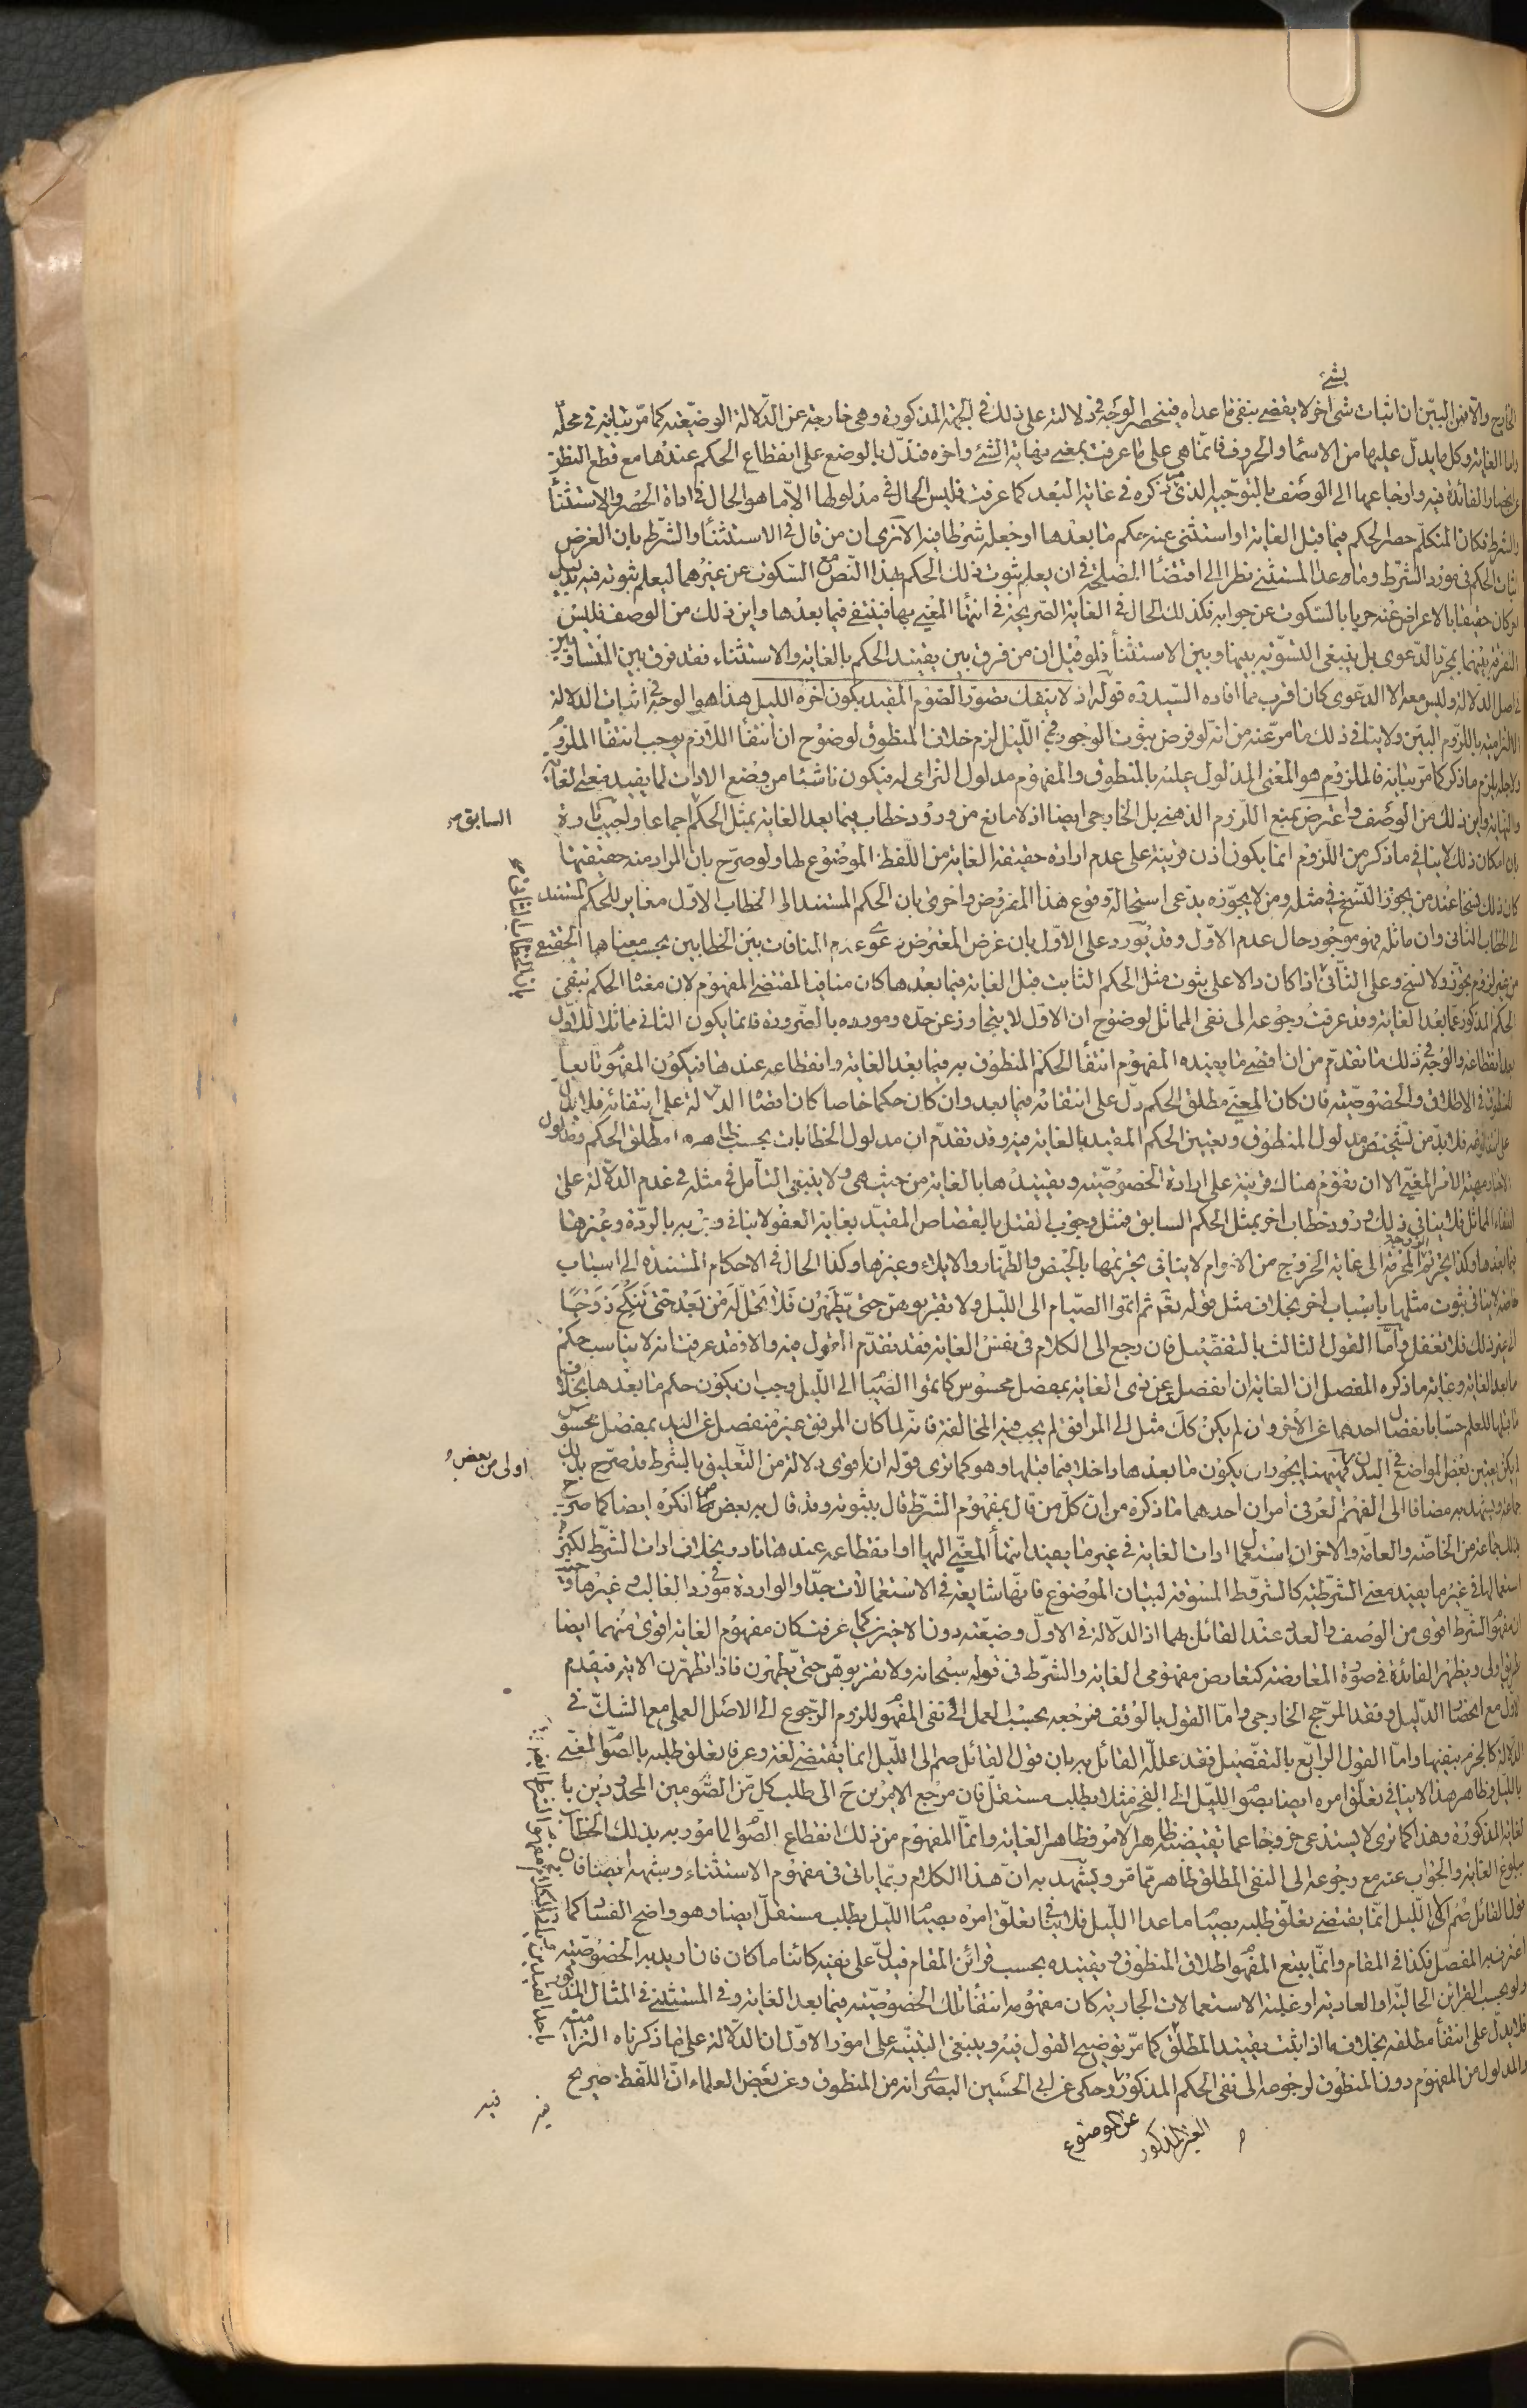 بشئ
الخارج والا فمن البين ان اثبات شئ اخر لا يقضى بنفى ما عداه فينحصر الوجه فى دلالته على ذلك فى الجهة المذكورة وهى خارجة عن الدلالة الوضعية كما مر بيانه فى محله
واما الغاية وكل ما يدل عليها من الاسماء والحروف فانما هى على ما عرفت بمعنى نهاية الشئ واخره فتدل بالوضع على انقطاع الحكم عندها مع قطع النظر
عن انحصار الفائدة فيه وارجاعها الى الوصف بالتوجيه الذى ذكره فى غاية البعد كما عرفت فليس الحال فى مدلولها الا ما هو الحال فى اداة الحصر والاستثناء
والشرط فكان المتكلم حصر الحكم فيما قبل الغاية او استثنى عنه حكم ما بعدها او جعله شرطا فيه الا ترى ان من قال فى الاستثناء والشرط بان الغرض
اثبات الحكم فى مورد الشرط وما عدا المستثنى نظرا الى اقتضاء المصلحة فى ان يعلم ثبوت ذلك الحكم بهذا النص مع السكوت عن غيرهما ليعلم ثبوته فيه بدليل
اخر كان حقيقا بالاعراض عنه حريا بالسكوت عن جوابه فكذلك الحال فى الغاية الصريحة فى انتهاء المغيى بها فينتفى فيما بعدها واين ذلك من الوصف فليس
التفرقة بينهما بمجرد الدعوى بل ينبغى التسوية بينها وبين الاستثناء فلو قيل ان من فرق بين تقييد الحكم بالغاية والاستثناء فقد فرق بين المتساويين
فى اصل الدلالة وليس معه الا الدعوى كان اقرب مما افاده السيد قده قوله اذ لا ينفك تصور الصوم المقيد بكون اخره الليل هذا هو الوجه فى اثبات الدلالة
الالتزامية باللزوم البين ولا ينافى ذلك ما مر عنه من انه لو فرض ثبوت الوجوب فى الليل لزم خلاف المنطوق لوضوح ان انتفاء اللازم يوجب انتفاء الملزوم
ولاجله يلزم ما ذكر كما مر بيانه فالملزوم هو المعنى المدلول عليه بالمنطوق والمفهوم مدلول التزامى له فيكون ناشئا من وضع الادات لما يفيد معنى الغاية
والنهاية واين ذلك من الوصف واعترض بمنع اللزوم الذهنى بل الخارجى ايضا اذ لا مانع من ورود خطاب فيما بعد الغاية بمثل الحكم اجماعا واجيب تارة
السابق
بان امكان ذلك لا ينافى ما ذكر من اللزوم انما يكون اذن قرينة على عدم ارادة حقيقة الغاية من اللفظ الموضوع لها ولو صرح بان المراد منه حقيقتها
كان ذلك نسخا عند من يجوز النسخ فى مثله ومن لا يجوزه يدعى استحالة وقوع هذا المفروض واخرى بان الحكم المستند الى الخطاب الاول مغاير للحكم المستند
الى الخطاب الثانى وان ماثله فهو موجود حال عدم الاول وقد يورد على الاول بان غرض المعترض دعوى عدم المنافات بين الخطابين بحسب معناهما الحقيقى
من غير لزوم تجوز ولا نسخ وعلى الثانى اذا كان دالا على ثبوت مثل الحكم الثابت قبل الغاية فيما بعدها كان منافيا لمقتضى المفهوم لان معناه الحكم بنفى
الحكم المذكور عما بعد الغاية وقد عرفت رجوعه الى نفى المماثل لوضوح ان الاول لا يتجاوز عن حده ومورده بالضرورة فانما يكون الثانى مماثلا للاول
بعد انقطاعه والوجه فى ذلك ما تقدم من ان اقصى ما يفيده المفهوم انتفاء الحكم المنطوق به فيما بعد الغاية وانقطاعه عندها فيكون المفهوم تابعا
للمنطوق فى الاطلاق والخصوصية فان كان المغيى مطلق الحكم دل على انتفائه فيما بعد وان كان حكما خاصا كان اقصاه الدلالة على انتفائه فلا يدل
على انتفاء غيره فلا بد من تشخيص مدلول المنطوق وتعيين الحكم المقيد بالغاية فيه وقد تقدم ان مدلول الخطابات بحسب ظاهره مطلق الحكم ومدلول
الامر مهية الامر المغيى الا ان تقوم هناك قرينة على ارادة الخصوصية وتقييدها بالغاية من حيث هى ولا ينبغى التأمل فى مثله فى عدم الدلالة على
انتفاء المماثل فلا ينافى ذلك ورود خطاب اخر بمثل الحكم السابق فمثل وجوب القتل بالقصاص المقيد بغاية العفو لا ينافى وجوبه بالردة وغيرها
فيما بعدها وكذا تحريم المحرمة الى غاية الخروج من الاحرام لا ينافى تحريمها بالحيض والظهار والايلاء وغيرها وكذا الحال فى الاحكام المستندة الى اسباب
خاصة لا ينافى ثبوت مثلها باسباب اخر بخلاف مثل قوله تعالى ثم اتموا الصيام الى الليل ولا تقربوهن حتى يطهرن فلا تحل له من بعد حتى تنكح زوجا
الى غير ذلك فلا تغفل واما القول الثالث بالتفصيل فان رجع الى الكلام فى نفس الغاية فقد تقدم القول فيه والا فقد عرفت انه لا يناسب حكم
ما بعد الغاية وغاية ما ذكره المفصل ان الغاية ان انفصل عن ذى الغاية بمفصل محسوس كاتموا الصيام الى الليل وجب ان يكون حكم ما بعدها بخلاف
ما قبلها للعلم حسا بانفصال احدهما عن الاخر وان لم يكن كذلك مثل الى المرافق لم يجب فيه المخالفة فانه لما كان المرفق غير منفصل عن اليد بمفصل محسوس
لم يكن تعيين بعض المواضع فى البدن اولى من بعض فههنا يجوز ان يكون ما بعدها داخلا فيما قبلها وهو كما ترى قوله انه اقوى دلالة من التعليق بالشرط قد صرح بذلك
جماعة ويشهد به مضافا الى الفهم العرفى امران احدهما ما ذكره من ان كل من قال بمفهوم الشرط قال بثبوته وقد قال به بعض من انكره ايضا كما صرح
بذلك جماعة من الخاصة والعامة والاخر ان استعمال ادات الغاية فى غير ما يفيد انتهاء المغيى اليها او انقطاعه عندها نادر بخلاف ادات الشرط لكثرة
استعمالها فى غير ما يفيد معنى الشرطية كالشروط المسوقة لبيان الموضوع فانها شايعة فى الاستعمالات جدا والواردة فى مورد الغالب وغيرها
ان مفهوم الشرط اقوى من الوصف والعدد عند القائل بهما اذ الدلالة فى الاول وضعية دون الاخيرين كما عرفت كان مفهوم الغاية اقوى منهما ايضا
بطريق اولى ويظهر الفائدة فى صورة المعارضة كتعارض مفهومى الغاية والشرط فى قوله سبحانه ولا تقربوهن حتى يطهرن فاذا تطهرن الاية فيقدم
الاول مع انحصار الدليل وفقد المرجح الخارجى واما القول بالوقف فمرجعه بحسب العمل الى نفى المفهوم للزوم الرجوع الى الاصل العملى مع الشك فى
الدلالة كالجزم بنفيها واما القول الرابع بالتفصيل فقد علله القائل به بان قول القائل صم الى الليل انما يقتضى لغة وعرفا تعلق طلبه بالصوم المغيى
بالليل وظاهر هذا لا ينافى تعلق امره ايضا بصوم الليل الى الفجر مثلا بطلب مستقل فان مرجع الامرين ح الى طلب كل من الصومين المحدودين با
لغاية المذكورة وهذا كما ترى لا يستدعى خروجا عما يقتضيه ظاهر الامر وظاهر الغاية وانما المفهوم من ذلك انقطاع الصوم المامور به بذلك الخطاب
ببلوغ الغاية والجواب عنه مع رجوعه الى النفى المطلق ظاهر مما مر ويشهد به ان هذا الكلام ربما ياتى فى مفهوم الاستثناء وشبهه ايضا فان
قول القائل صم الا الليل انما يقتضى تعلق طلبه بصيام ما عدا الليل فلا ينافى تعلق امره بصيام الليل بطلب مستقل ايضا وهو واضح الفساد كما
اعترف به المفصل فكذا فى المقام وانما يتبع المفهوم اطلاق المنطوق وتقييده بحسب قرائن المقام فيدل على نفيه كائنا ما كان فان اريد به الخصوصية
ولو بحسب القرائن الحالية او العادية او غلبة الاستعمالات الجارية كان مفهومه انتفاء تلك الخصوصية فيما بعد الغاية وفى المستثنى فى المثال المذكور
فلا يدل على انتفاء مطلقه بخلاف ما اذا ثبت تقييد المطلق كما مر توضيح القول فيه وينبغى التنبيه على امور الاول ان الدلالة على ما ذكرناه التزامية
والمدلول من المفهوم دون المنطوق لرجوعه الى نفى الحكم المذكور وحكى عن ابى الحسين البصرى انه من المنطوق وعن بعض العلماء ان اللفظ صريح
فيه
عن الموضوع
الغير المذكور